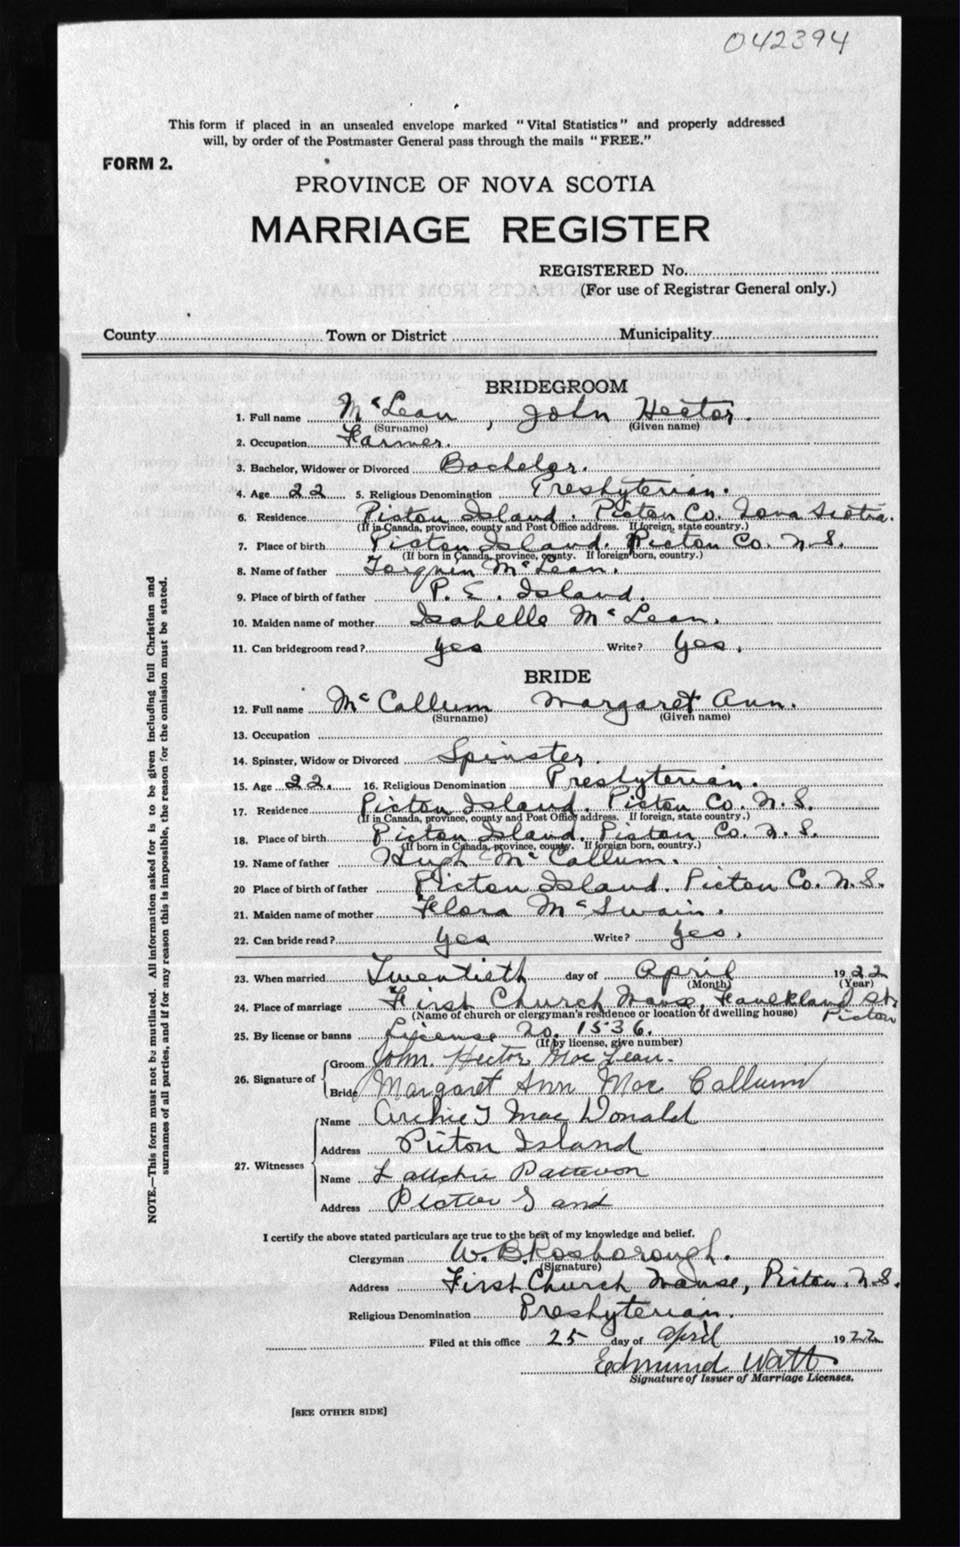 042394
This form if placed in an unsealed envelope marked "Vital Statistics" and properly addressed
will, by order of the Postmaster General pass through the mails "FREE."
FORM 2.
PROVINCE OF NOVA SCOTIA
MARRIAGE REGISTER
REGISTERED No.
(For use of Registrar General only.)
County Town or District Municipality
BRIDEGROOM
1. Full name McLean, John Hector.
(Surname) (Given name)
2. Occupation Farmer.
3. Bachelor, Widower or Divorced Bachelor.
4. Age 22 5. Religious Denomination Presbyterian.
6. Residence Pictou Island. Pictou Co. Nova Scotia.
(If in Canada, province, county and Post Office address. If foreign, state country.)
7. Place of birth Pictou Island. Pictou Co. N.S.
(If born in Canada, province, county. If foreign born, country.)
8. Name of father McLean.
9. Place of birth of father P. E. Island.
10. Maiden name of mother Isabelle McLean.
11. Can bridegroom read? yes Write? yes.
BRIDE
12. Full name McCallum Margaret Ann.
(Surname) (Given name)
13. Occupation
14. Spinster, Widow or Divorced Spinster.
15. Age 22. 16. Religious Denomination Presbyterian.
17. Residence Pictou Island. Pictou Co. N.S.
(If in Canada, province, county and Post Office address. If foreign, state country.)
18. Place of birth Pictou Island. Pictou Co. N.S.
(If born in Canada, province, county. If foreign born, country.)
19. Name of father Hugh McCallum.
20 Place of birth of father Pictou Island. Pictou Co. N.S.
21. Maiden name of mother Flora McSwain.
22. Can bride read? yes Write? yes.
23. When married Twentieth day of April 1922
(Month) (Year)
24. Place of marriage First Church Manse, Faulkland St.
(Name of church or clergyman's residence or location of dwelling house) Pictou
25. By license or banns License No. 1536.
(If by license, give number)
26. Signature of Groom John. Hector MacLean.
Bride Margaret Ann MacCallum
27. Witnesses Name Archie J MacDonald
Address Pictou Island
Name Patterson
Address Pictou Island
I certify the above stated particulars are true to the best of my knowledge and belief.
Clergyman W. B. Rosborough.
(Signature)
Address First Church Manse, Pictou. N.S.
Religious Denomination Presbyterian.
Filed at this office 25 day of April 1922
Edmund Watt
Signature of Issuer of Marriage Licenses.
[SEE OTHER SIDE]
NOTE.—This form must not be mutilated. All information asked for is to be given including full Christian and
surnames of all parties, and if for any reason this is impossible, the reason for the omission must be stated.